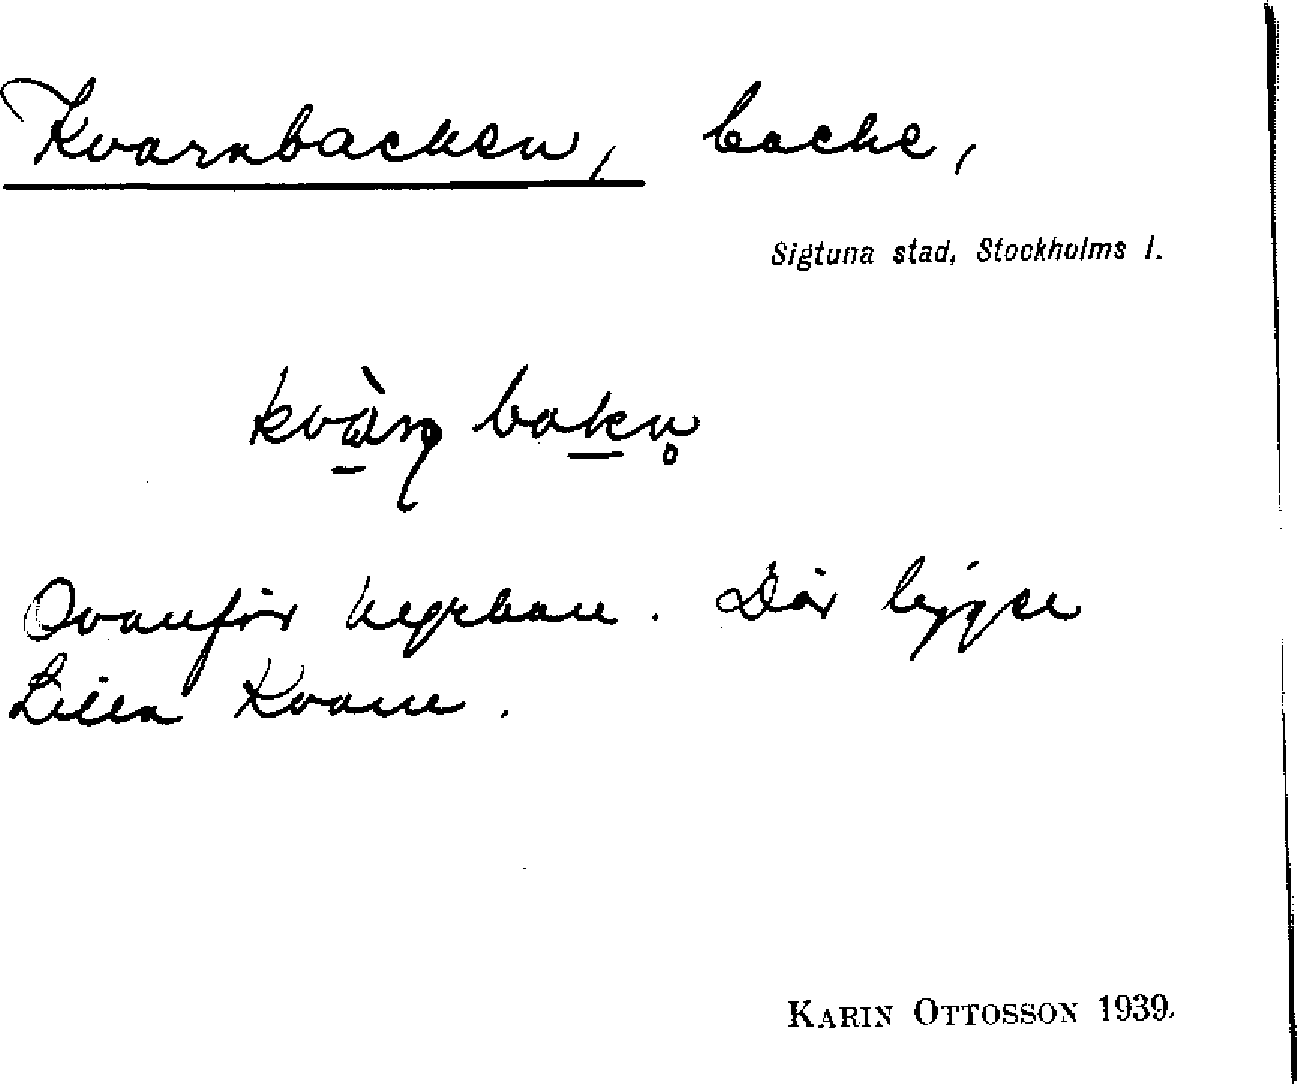 Kvarnbacken, backe,
Sigtuna stad, Stockholms l.
kvàrn bakn̥
Ovanför kägelban. Där ligger
Lilla Kvarn.
KARIN OTTOSSON 1939.